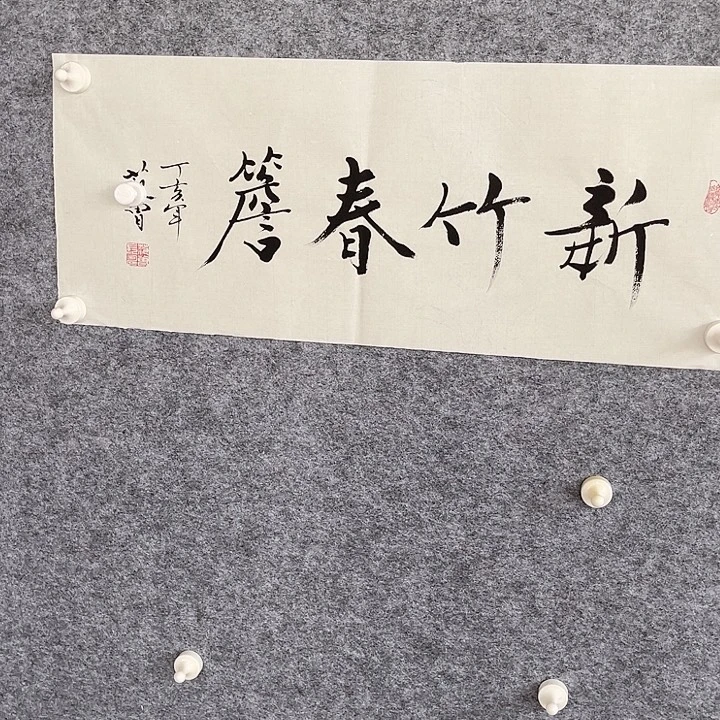 新竹春簷
丁亥年